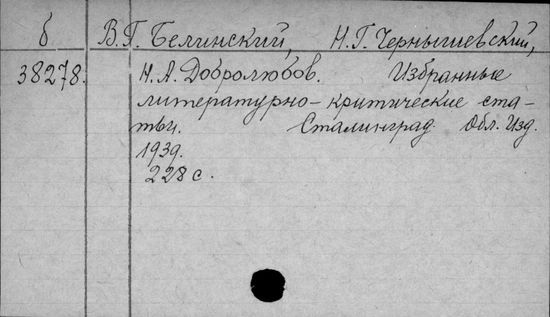 б В.Г. Белинский, Н.Г. Чернышевский,
38278. Н.А. Добролюбов. Избранные
литературно-критические ста-
тьи. Сталинград. Обл. Изд.
1939.
228 с.